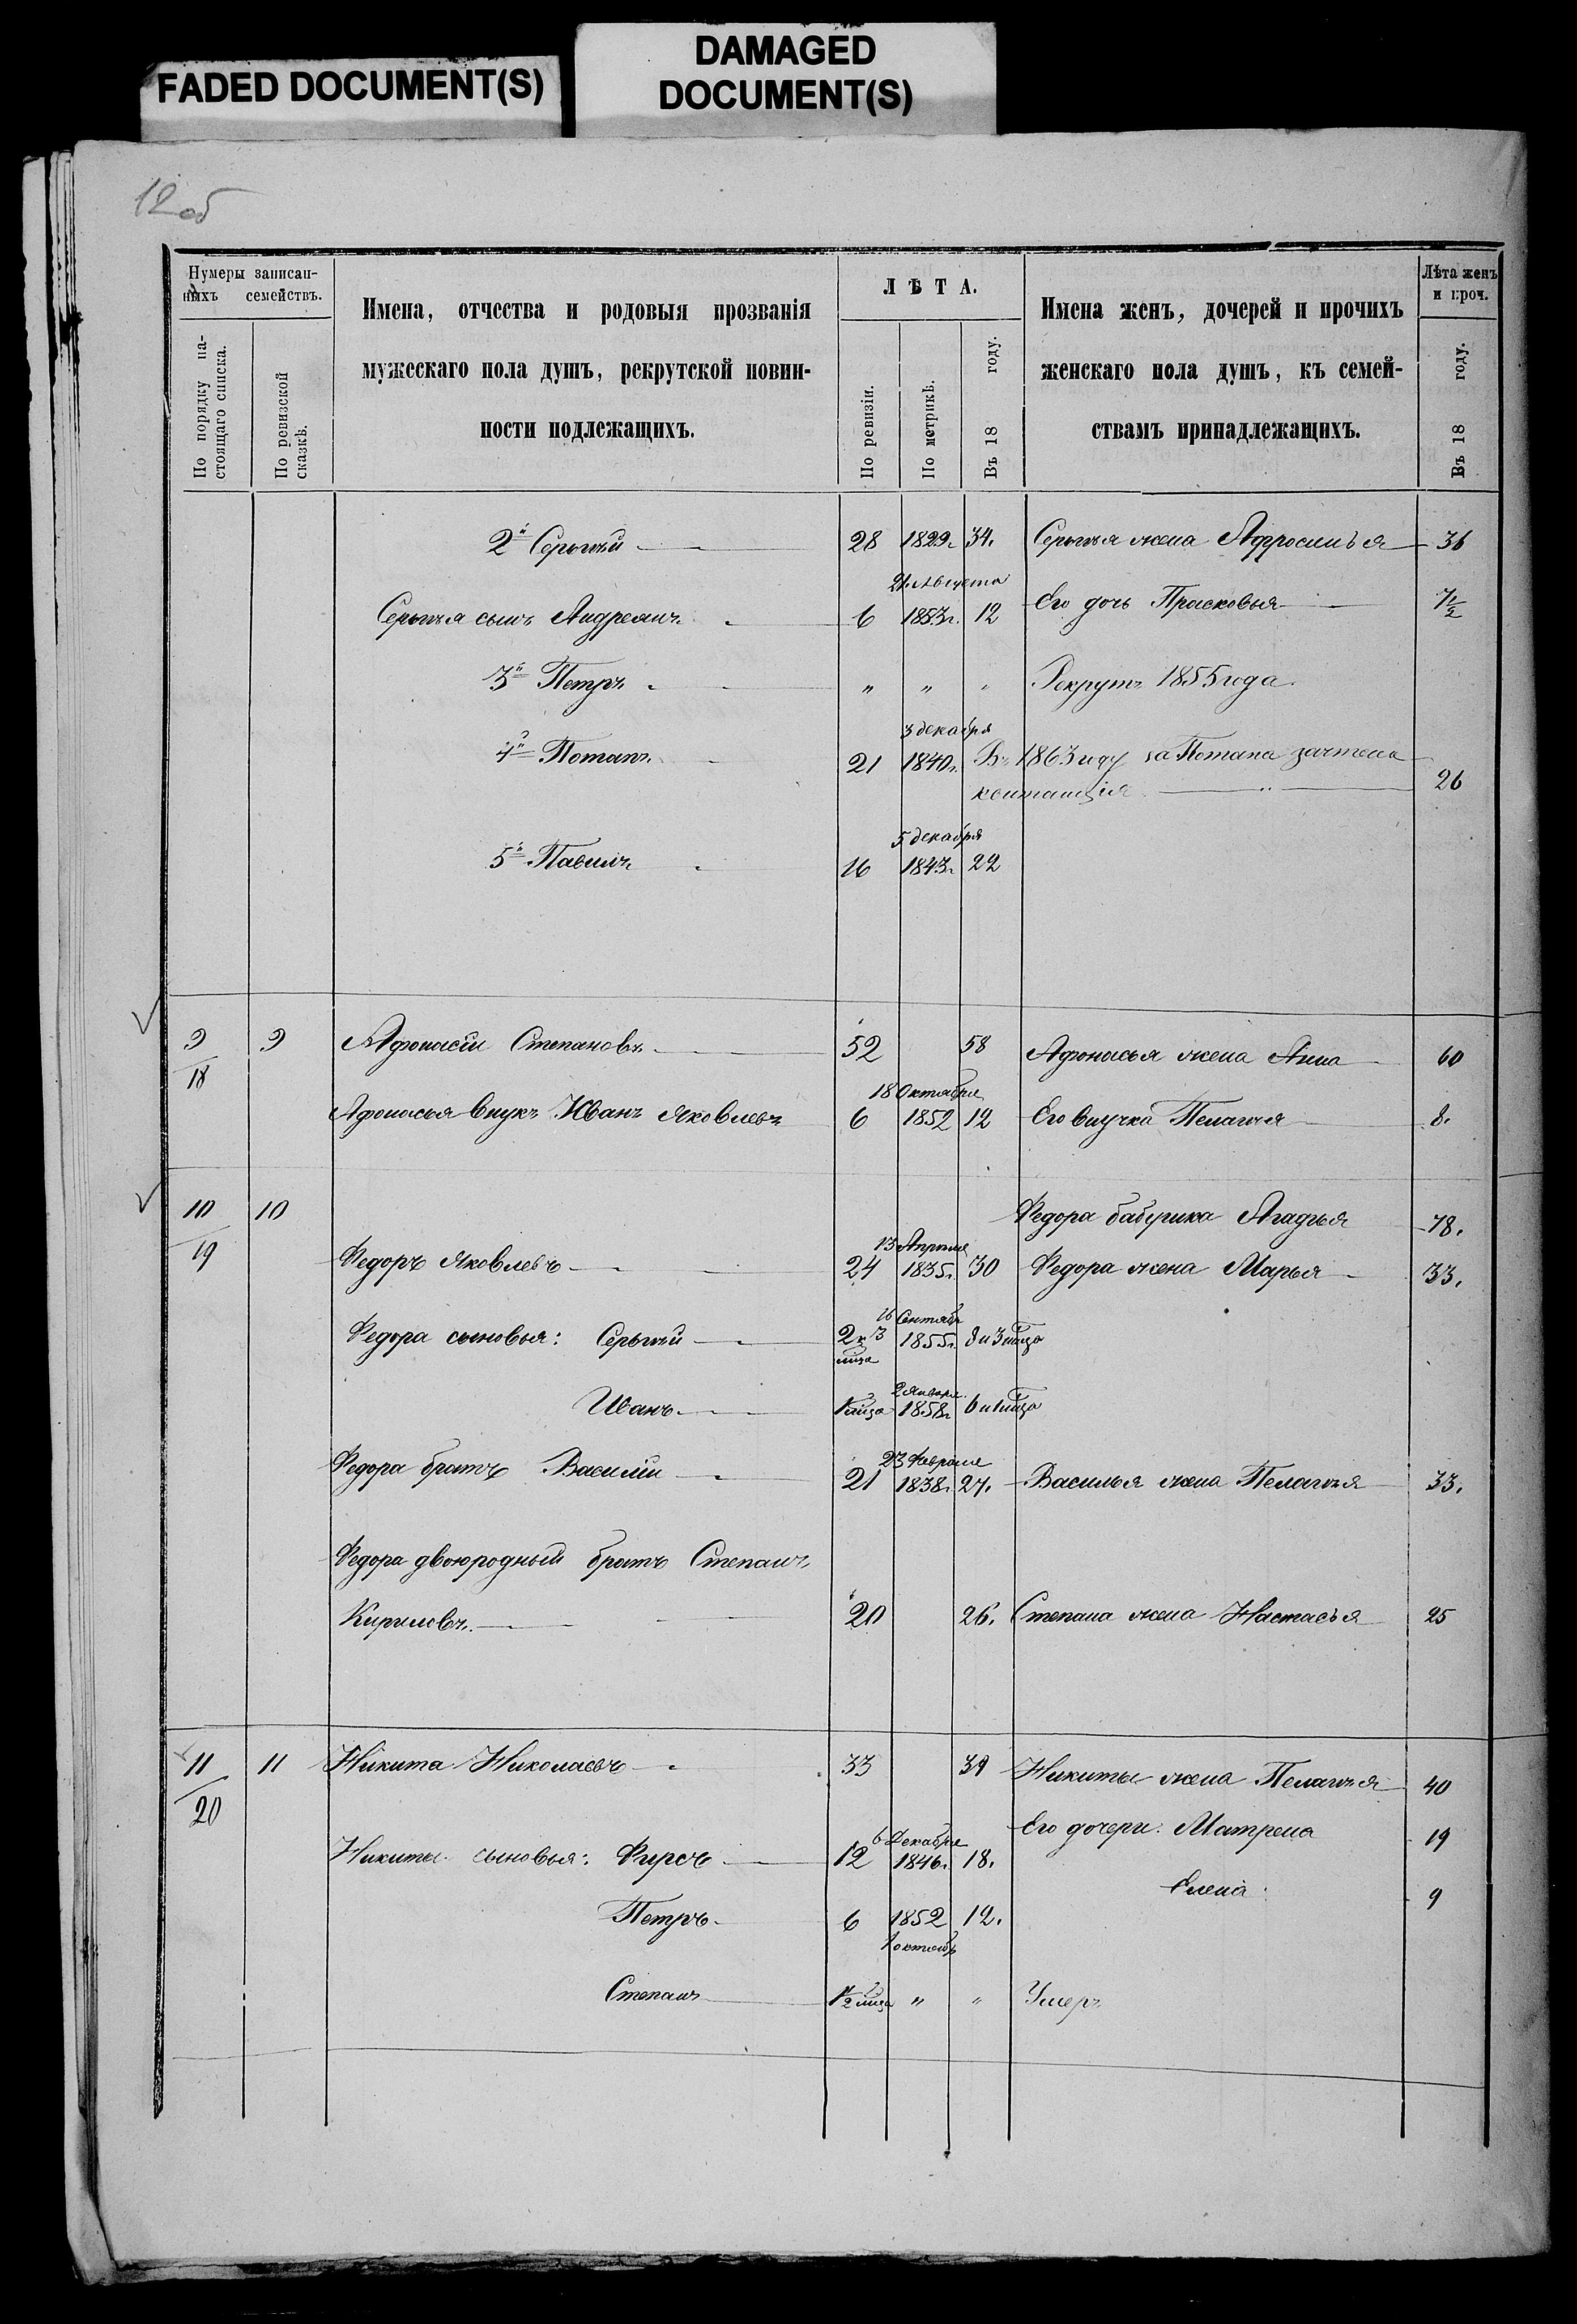 FADED DOCUMENT(S)
DAMAGED
DOCUMENT(S)
12 об
Нумеры записан-
ныхъ семействъ.
По порядку на-
стоящаго списка.
По ревизской
сказкѣ.
Имена, отчества и родовыя прозванія
мужескаго пола душъ, рекрутской повин-
ности подлежащихъ.
ЛѢТА.
По ревизіи.
По метрикѣ.
Въ 18 году.
Имена женъ, дочерей и прочихъ
женскаго пола душъ, къ семей-
ствамъ принадлежащихъ.
Лѣта женъ
и проч.
Въ 18 году.
2й Сергѣй 28 1829г. 34. Сергѣя жена Афросинья 36
21 Августа
Сергѣя сынъ Андреянъ 6 1853г. 12 Его дочь Прасковья 7½
3й Петръ " " " Рекрутъ 1855 года
3 декабря
4й Потапъ 21 1840г. Въ 1863 году за Потапа зачтена
квитанція 26
5 декабря
5й Павилъ 16 1843г. 22
9 9 Афонасій Степановъ 52 58 Афонасья жена Анна 60
18
18 Октября
Афонасья внукъ Иванъ Яковлевъ 6 1852 12 Его внучка Пелагѣя 8.
10 10 Федора бабушка Агафья 78.
19
13 Апреля
Федоръ Яковлевъ 24 1835г. 30 Федора жена Марья 33.
16 Сентяб
Федора сыновья: Сергѣй 2 и 3 мца 1855г. 8 и 3 мца
2 Января
Иванъ 1 мца 1858г. 6 и 1 мца
23 Февраля
Федора братъ Василій 21 1838г. 27. Василья жена Пелагѣя 33.
Федора двоюродный братъ Степанъ
Кириловъ 20 26. Степана жена Настасья 25
11 11 Никита Николаевъ 33 39 Никиты жена Пелагѣя 40
20
Его дочери: Матрена 19
6 Декабря
Никиты сыновья: Фирсъ 12 1846г. 18.
Елена 9
Петръ 6 1852 12.
1 октяб
Степанъ ½ мца " " Умеръ